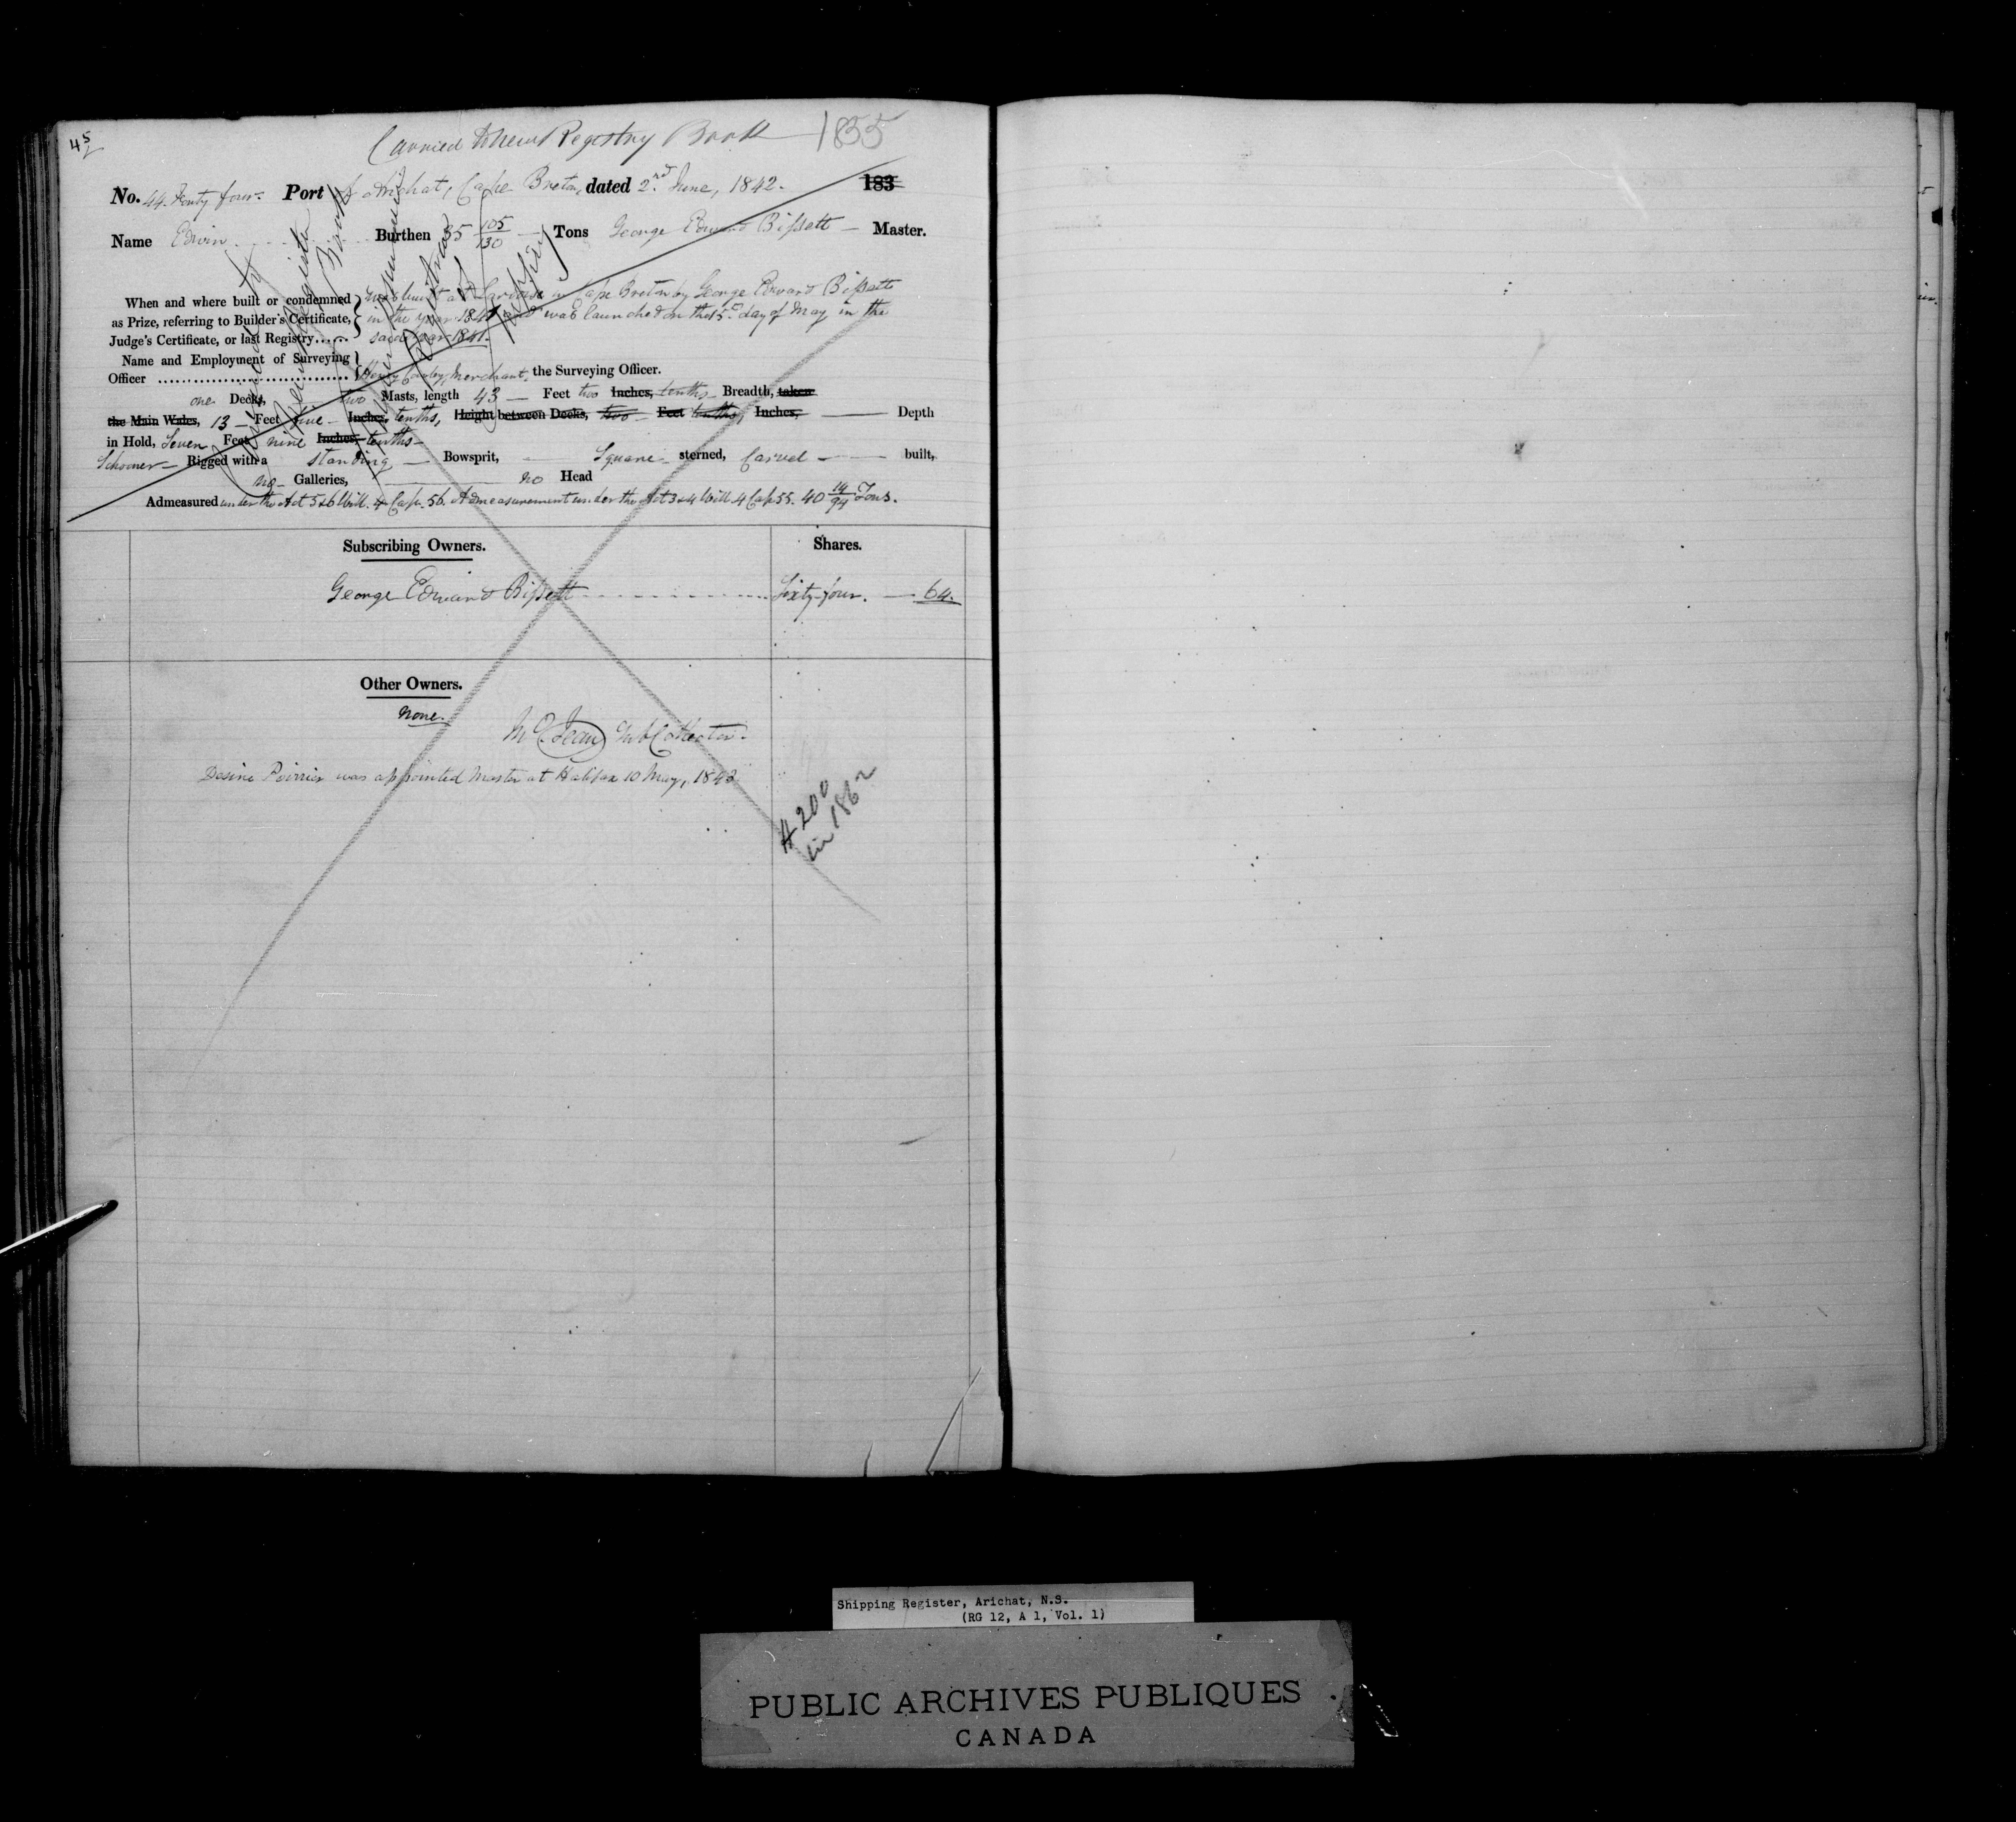 45
Carried to new Registry Book 1855
No. 44. Forty four. Port of Arichat, Cape Breton, dated 2nd June, 1842. 183
Name Edwin Burthen 35 105/130 Tons George Edward Bissett Master.
When and where built or condemned as Prize, referring to Builder's Certificate, Judge's Certificate, or last Registry......
was built at in Cape Breton by George Edward Bissett
in the year 1841 and was launched on the 5th day of May in the
said year 1841.
Name and Employment of Surveying
Officer Henry Merchant, the Surveying Officer.
one Decks, two Masts, length 43 Feet two Inches, tenths Breadth, taken
the Main Wales, 13 Feet five Inches, tenths, Height between Decks, two Feet tenths, Inches, Depth
in Hold, Seven Feet nine Inches, tenths
Schooner Rigged with a standing Bowsprit, Square sterned, Carvel built,
no Galleries, no Head
Admeasured under the Act 5 & 6 Will. 4 Cap. 56. Admeasurement under the Act 3 & 4 Will. 4 Cap 55. 40 14/94 Tons.
Subscribing Owners. Shares.
George Edward Bissett Sixty-four. 64.
Other Owners.
None.
Sub Collector.
Desire Poirrier was appointed Master at Halifax 10 May, 1843
# 200
in 1862
Shipping Register, Arichat, N.S.
(RG 12, A 1, Vol. 1)
PUBLIC ARCHIVES PUBLIQUES
CANADA